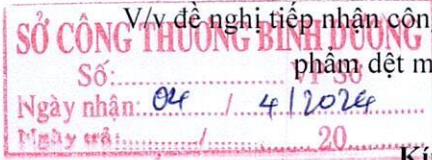 V/v đề nghị tiếp nhận côn
SỞ CÔNG THƯƠNG BÌNH DƯƠNG
Số:
phẩm dệt m
Ngày nhận: 04 / 4 / 2024
Ngày trả: / 20
Kí